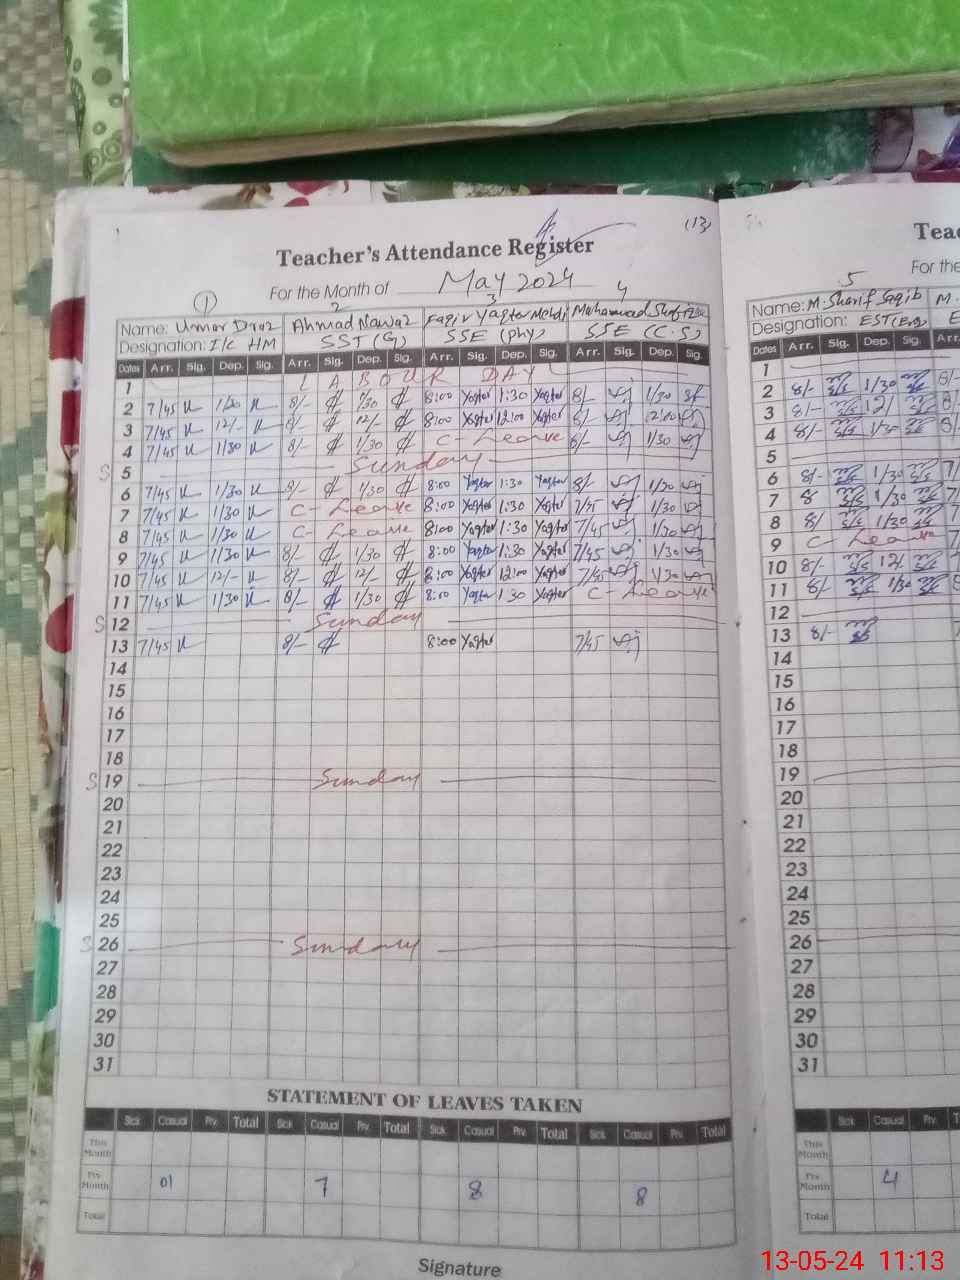 (13)
Teacher's Attendance Register
For the Month of May 2024
1 2 3 4
Name: Umar Draz Ahmad Nawaz Faqir Yagter Mehdi Muhammad
Designation: I/C HM SST (G) SSE (phy) SSE (C.S)
Dates Arr. Sig. Dep. Sig. Arr. Sig. Dep. Sig. Arr. Sig. Dep. Sig. Arr. Sig. Dep. Sig.
1 LABOUR DAY
2 7/45 1/30 8/- 1/30 8:00 Yagter 1:30 Yagter 8/- 1/30
3 7/45 12/- 8/- 12/- 8:00 Yagter 12:00 Yagter 8/- 12:00
4 7/45 1/30 8/- 1/30 C-Leave 1/30
S 5 Sunday
6 7/45 1/30 8/- 1/30 8:00 Yagter 1:30 Yagter 8/- 1/30
7 7/45 1/30 C-Leave 8:00 Yagter 1:30 Yagter 7/45 1/30
8 7/45 1/30 C-Leave 8:00 Yagter 1:30 Yagter 7/45 1/30
9 7/45 1/30 8/- 1/30 8:00 Yagter 1:30 Yagter 7/45 1/30
10 7/45 12/- 8/- 12/- 8:00 Yagter 12:00 Yagter 7/45 1/30
11 7/45 1/30 8/- 1/30 8:00 Yagter 1:30 Yagter C-Leave
S 12 Sunday
13 7/45 8/- 8:00 Yagter 7/45
14
15
16
17
18
S 19 Sunday
20
21
22
23
24
25
S 26 Sunday
27
28
29
30
31
STATEMENT OF LEAVES TAKEN
Sick Casual Prv. Total Sick Casual Prv. Total Sick Casual Prv. Total Sick Casual Prv. Total
This Month
Prv Month 01 7 8 8
Total
Signature
Teac
For the
5
Name: M. Sharif Saqib M.
Designation: EST(Eng) E
Dates Arr. Sig. Dep. Sig. Arr.
1
2 8/- 1/30 8/-
3 8/- 12/
4 8/- 1/30
5
6 8/- 1/30
7 8 1/30
8 8/ 1/30
9 C-Leave
10 8/- 12/
11 8/- 1/30
12
13 8/-
14
15
16
17
18
19
20
21
22
23
24
25
26
27
28
29
30
31
Sick Casual Prv. Total
This Month
Prv Month 4
Total
13-05-24 11:13